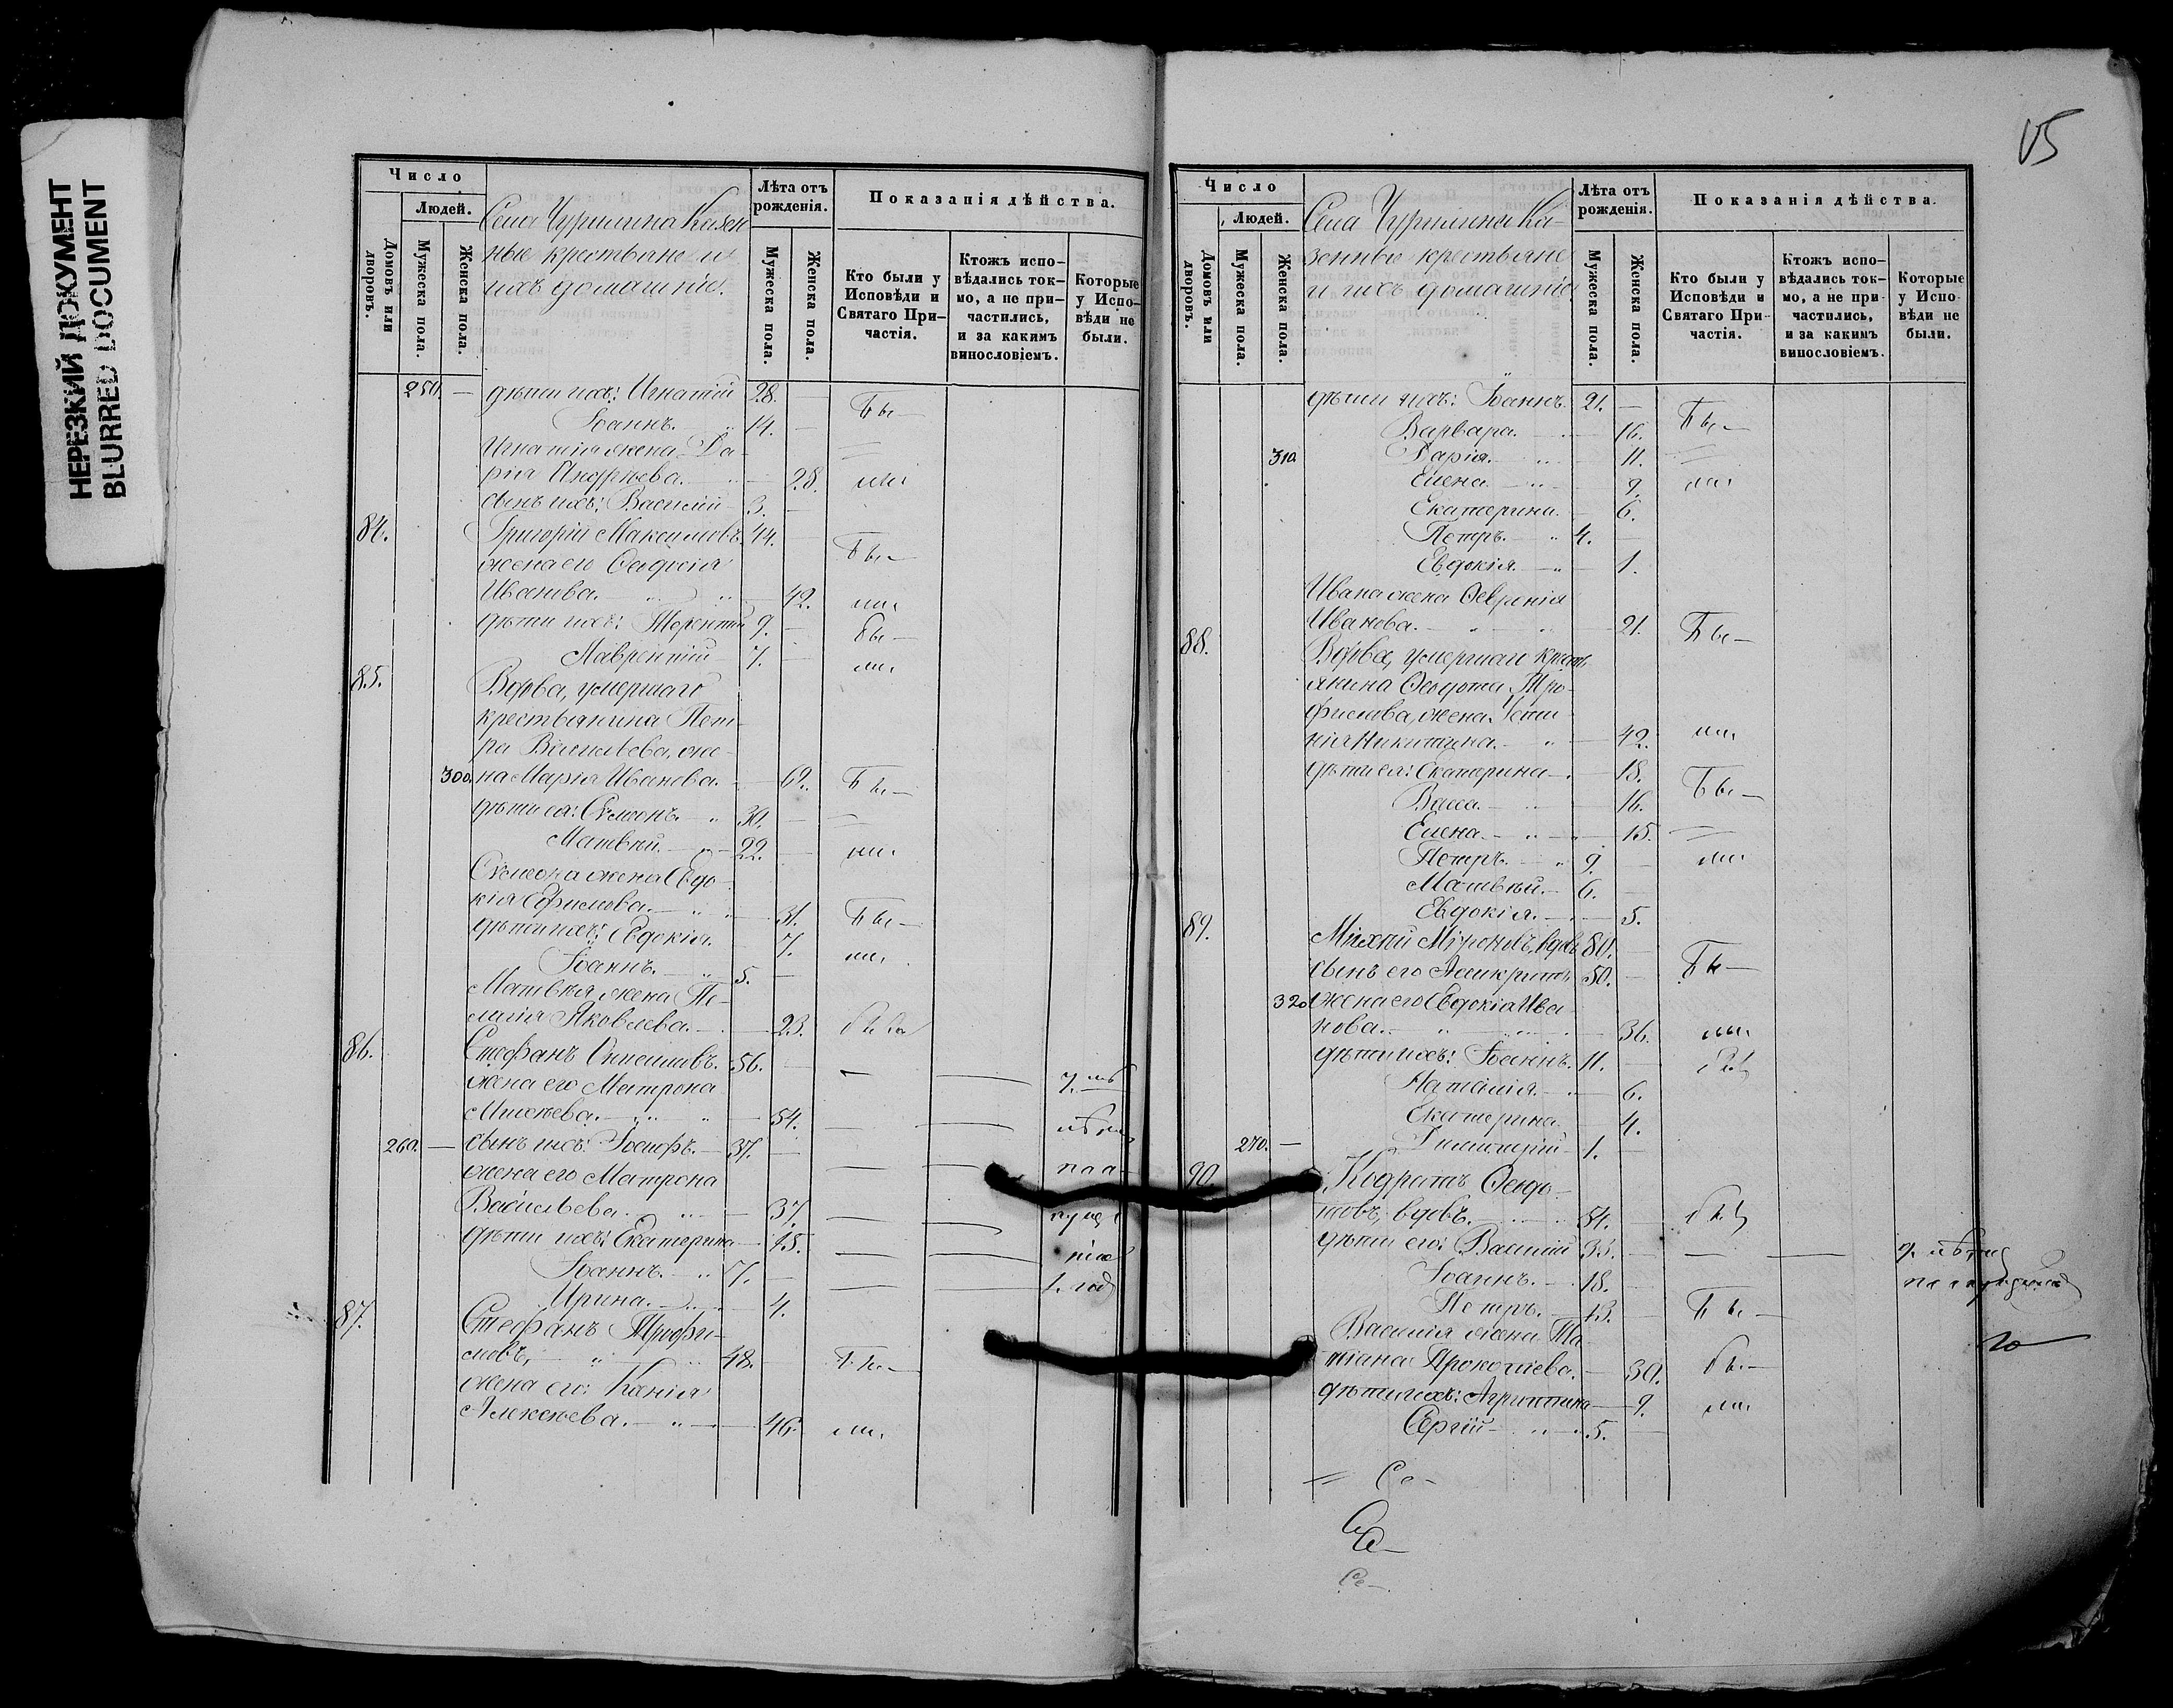 НЕРЕЗКИЙ ДОКУМЕНТ
BLURRED DOCUMENT
Число
Людей.
Домовъ или дворовъ.
Мужеска пола.
Женска пола.
Села Чуришина Казен
ные крестьяне и
ихъ домашніе.
Лѣта отъ рожденія.
Мужеска пола.
Женска пола.
Показанія дѣйства.
Кто были у Исповѣди и Святаго При-частія.
Ктожъ испо-вѣдались ток-мо, а не при-частились, и за какимъ винословіемъ.
Которые у Испо-вѣди не были.
250. — дѣти ихъ: Игнатій 28. — Бы—
Іоаннъ. 14. —
Игнатія жена Да-
рія Андрѣева. 28. ли
сынъ ихъ: Василій 3. —
84. Григорій Максимовъ 44. Бы—
жена его
Иванова. 42. ли
дѣти ихъ: 9. — Бы—
Лаврентій 7. — ли
85. Вдова, умершаго
крестьянина Пет-
ра Васильева, же-
300. на Марія Иванова. 62. Бы—
дѣти ея: Сѵмеонъ. 30. —
Матвѣй. 22. — ли
Сѵмеона жена Евдо-
кія Ефимова. 31. Бы—
дѣти ихъ: Евдокія. 7. ли
Іоаннъ. 5. —
Матвѣя жена Пе-
лагія Яковлева. 23.
86. Стефанъ 56. —
жена его Матрона
Михѣева. 54.
260. — сынъ ихъ: Іосифъ. 37. —
жена его Матрона
Васильева 37.
дѣти ихъ: Екатерина 15.
Іоаннъ. 7. —
Ирина. 4.
87. Стефанъ Трофи-
мовъ, 48. Бы—
жена его: Ксенія
Алексѣева. 46. ли
15
Число
Людей.
Домовъ или дворовъ.
Мужеска пола.
Женска пола.
Села Чуришина Ка-
зенные крестьяне
и ихъ домашніе.
Лѣта отъ рожденія.
Мужеска пола.
Женска пола.
Показанія дѣйства.
Кто были у Исповѣди и Святаго При-частія.
Ктожъ испо-вѣдались ток-мо, а не при-частились, и за какимъ винословіемъ.
Которые у Испо-вѣди не были.
дѣти ихъ: Іоаннъ 21. — Бы—
Варвара. 16.
310 Дарія. 11.
Елена 9. ли
Екатерина 6.
Петръ. 4. —
Евдокія. 1.
Ивана жена Февронія
Иванова. 21. Бы—
88. Вдова, умершаго крест
янина Ѳеодота Тро-
фимова, жена Усти-
нія Никитина. 42. ли
дѣти ея: Екатерина 18. Бы—
Васса. 16.
Елена. 15.
Петръ. 9. — ли
Матвѣй. 6. —
Евдокія. 5.
89. Михей Міроновъ, вдов. 80. —
сынъ его 50. — Бы—
320 жена его Евдокія Ива
нова. 36. ли
дѣти ихъ: Іоаннъ. 11. —
Наталія. 6.
Екатерина 4.
270. — 1. —
90. Кодратъ Ѳеодо-
товъ, вдовъ. 54. —
дѣти его: Василій 33. —
Іоаннъ. 18.
Петръ. 13. — Бы—
Василія жена Та-
тіана Прокопіева. 30. Бы—
дѣти ихъ: Агриппина 9. ли
Сергій 5. —